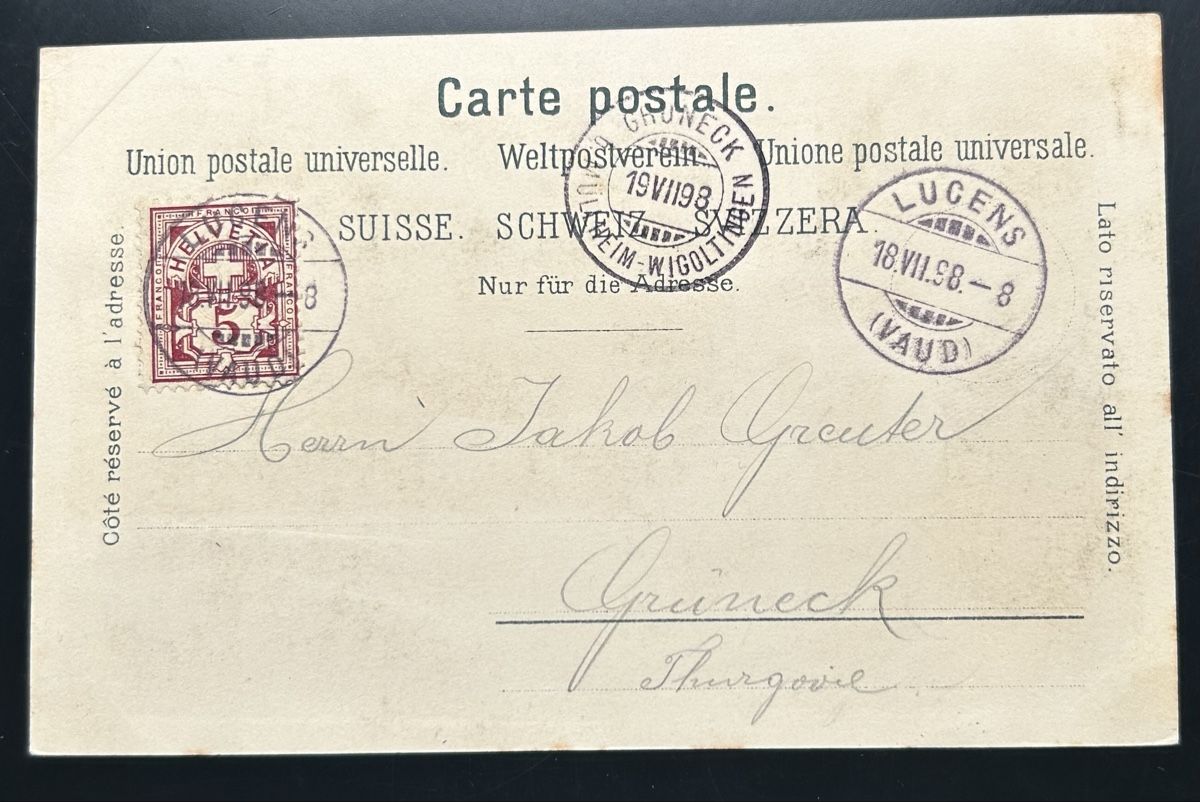 Carte postale.
Union postale universelle. Weltpostverein Unione postale universale.
SUISSE. SCHWEIZ. SVIZZERA.
Nur für die Adresse.
Côté réservé à l'adresse.
Lato riservato all' indirizzo.
FRANCO
FRANCO
FRANCO
HELVETIA
5
LUCENS
8
(VAUD)
GRÜNECK
19 VII 98
MÜLHEIM-WIGOLTINGEN
LUCENS
18.VII.98.-8
(VAUD)
Herrn Jakob Greuter
Grüneck
Thurgovie